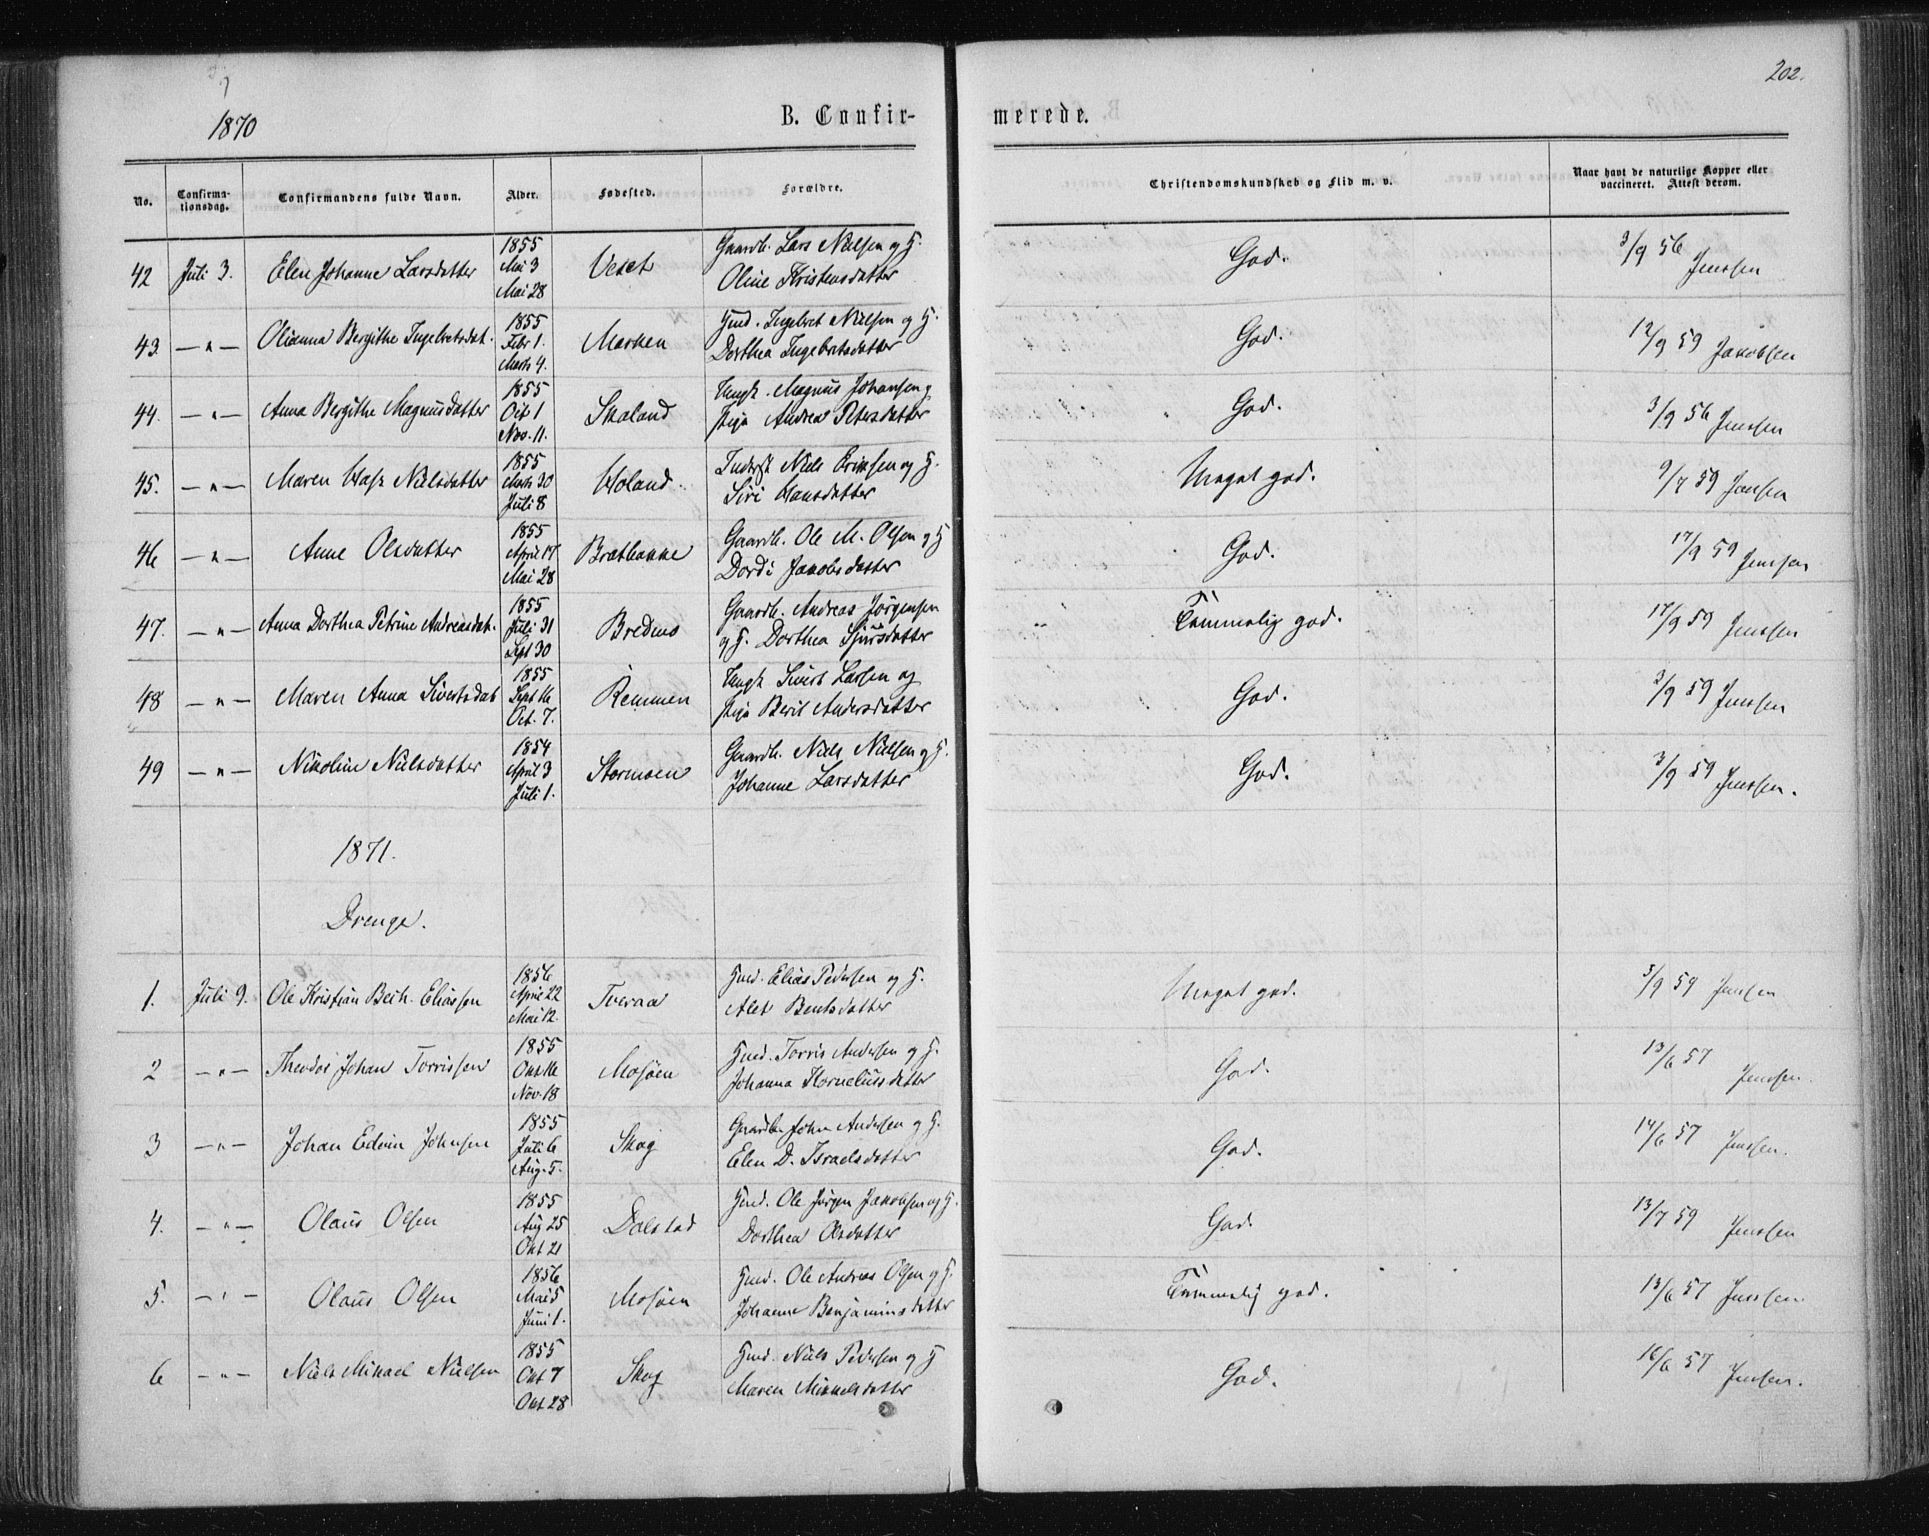 202.
1870
B. Confir-
merede.
No.
Confirma-
tionsdag.
Confirmandens fulde Navn.
Alder.
Fødested.
Forældre.
Christendomskundskab og Flid m. v.
Naar havt de naturlige Kopper eller
vaccineret. Attest derom.
42 Juli 3. Elen Johanne Larsdatter 1855 Mai 3 Mai 28 Veset Gaardb. Lars Nielsen og H. Oline Kristensdatter God. 3/9 56 Jenssen
43. —"— Olianna Bergithe Ingebretsdat. 1855 Febr 1. Marts 4. Marken Hmd. Ingebret Nielsen og H. Dorthea Ingebretsdatter God. 12/9 59 Jakobsen
44. —"— Anna Bergithe Magnusdatter 1855 Oct 1 Nov. 11. Skaland Ungk. Magnus Johansen og Pige Andrea Petersdatter God. 3/9 56 Jenssen
45. —"— Maren Nielsdatter 1855 Marts 30 Juli 8 Holand Inderst Niels Eriksen og H. Siri Hansdatter Meget god. 9/7 59 Jenssen
46 —"— Anne Olsdatter 1855 April 17 Mai 28 Brathakke Gaardb. Ole M. Olsen og H Dordi Jakobsdatter God. 17/9 59 Jenssen
47. —"— Anna Dorthea Petrine Andreasdat. 1855 Juli 31 Sept 30 Bredmo Gaardb. Andreas Jørgensen og H. Dorthea Sjursdatter Tammelig god. 17/9 59 Jenssen
48 —"— Maren Anna Sivertsdat 1855 Sept 16 Oct. 7. Remmen Ungk Sivert Larsen og Pige Berit Andersdatter God. 3/9 59 Jenssen
49 —"— Nikoline Nielsdatter 1854 April 3 Juli 1. Stormoen Gaardb. Niels Nielsen og H. Johanne Larsdatter God. 3/9 59 Jenssen.
1871.
Drenge.
1. Juli 9. Ole Kristian Bech. Eliassen 1856 April 22 Mai 12. Tveraa Hmd. Elias Pedersen og H. Alet Bentsdatter Meget god. 5/9 59 Jenssen
2 —"— Theodor Johan Torrissen 1855 Okt 16 Nov. 18 Mosøen Hmd. Torris Andersen og H. Johanna Korneliusdatter God. 13/6 57 Jenssen.
3 —"— Johan Edvin Johnsen 1855 Juli 6 Aug. 5. Skog Gaardbr John Andersen og H. Elen D. Israelsdatter God. 14/6 57 Jenssen.
4. —"— Olaus Olsen 1855 Aug 25 Okt 21 Dolstad Hmd. Ole Jørgen Jakobsen og H. Dorthea Olsdatter God. 13/7 59 Jenssen
5. —"— Olaus Olsen 1856 Mai 5 Juni 1. Mosøen Hmd. Ole Andreas Olsen og H. Johanne Benjaminsdatter Tammelig god. 13/6 57 Jenssen
6 —"— Niels Mikael Nielsen 1855 Okt 7 Okt 28 Skog Hmd. Niels Pedersen og H Maren Mikkelsdatter God. 16/6 57 Jenssen.